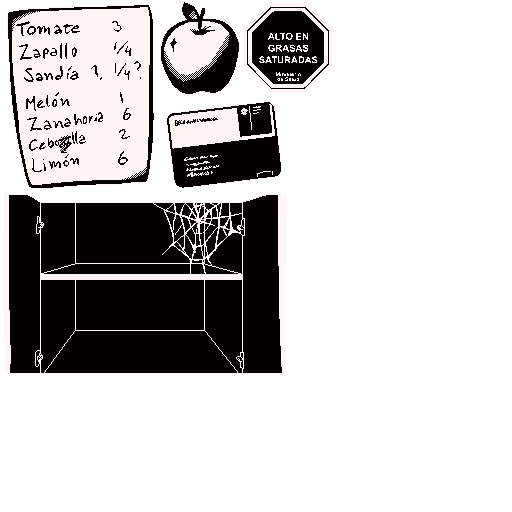 Tomate 3
Zapallo 1/4
Sandía 1, 1/4?
Melón 1
Zanahoria 6
Cebolla 2
Limón 6
ALTO EN
GRASAS
SATURADAS
Ministerio
de Salud